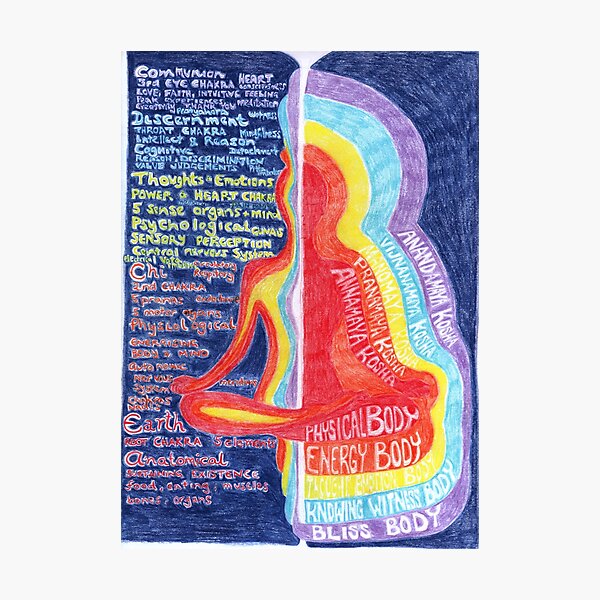 Communion
HEART
3rd EYE CHAKRA
consciousness
LOVE, FAITH, INTUITIVE FEELING
Peak experiences meditation
Creativity THANK YOU
Pratyahara
witness
Discernment
THROAT CHAKRA Mindfulness
Intellect & Reason
Cognitive Detachment
REASON & DISCRIMINATION
VALUE JUDGEMENTS
Thoughts & Emotions
POWER & HEART CHAKRA
5 sense organs + mind
Psychological GUNAS
SENSORY PERCEPTION
Central nervous System
electrical
Chi
2nd CHAKRA
5 pranas
5 motor organs
Physiological
ENERGISING
BODY & MIND
System
memory
Earth
ROOT CHAKRA 5 elements
Anatomical
SUSTAINING EXISTENCE
food, eating muscles
bones, organs
ANANDAMAYA KOSHA
VIJNANAMAYA KOSHA
MANOMAYA KOSHA
PRANAMAYA KOSHA
ANNAMAYA KOSHA
PHYSICAL BODY
ENERGY BODY
THOUGHT EMOTION BODY
KNOWING WITNESS BODY
BLISS BODY